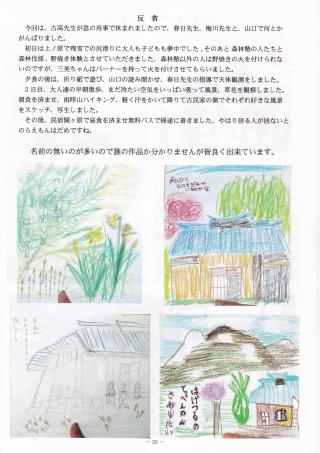 反省
今回は、古高先生が急の用事で休まれましたので、春日先生、梅川先生と、山口で何とか
がんばりました。
初日は上ノ原で残雪での尻滑りに大人も子どもも夢中でした、そのあと森林塾の人たちと
森林伐採、野焼き体験とさせていただきました。森林塾以外の人は野焼きの火を付けられな
いのですが、三美ちゃんはバーナーを持って火を付けさせてもらいました。
夕食の後は、折り紙で遊び、山口の読み聞かせ、春日先生の指導で天体観測をしました。
2日目、大人達の早朝散歩、まだ冷たい空気をいっぱい吸って風景、草花を観察しました。
朝食を済ませ、雨呼山ハイキング、軽く汗をかいて降りて古民家の側でそれぞれ好きな風景
をスケッチ、写生しました。
その後、民宿関ヶ原で昼食を済ませ無料バスで帰途に着きました、やはり居る人が居ないと
のらえもんはだめですね。
名前の無いのが多いので誰の作品か分かりませんが皆良く出来ています。
はげつるの
てっぺんの
- 20 -